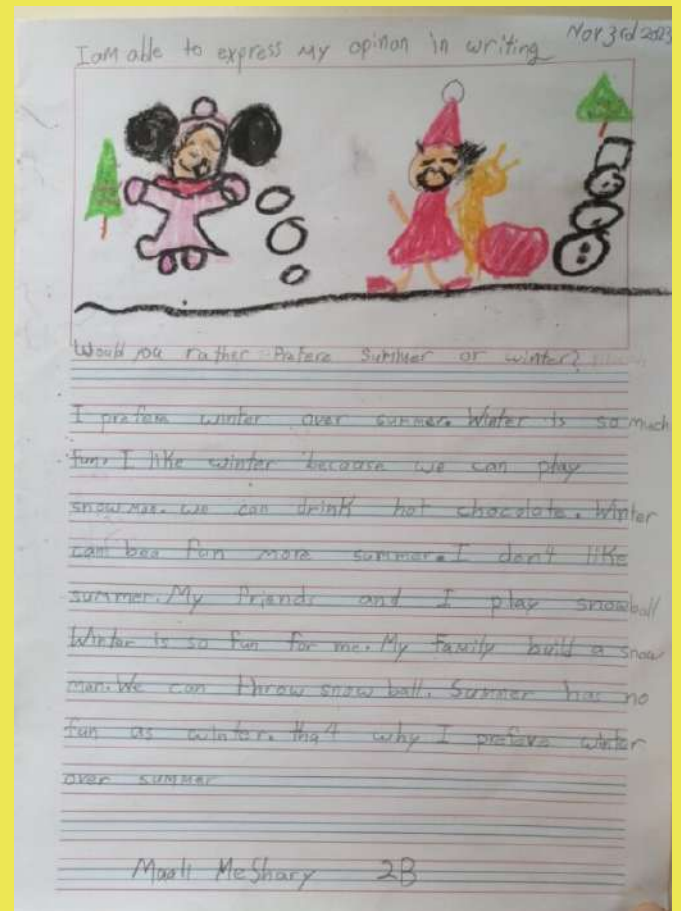 Nov 3rd 2023
I am able to express my opinon in writing
Would you rather Prefere Summer or winter?
I prefere winter over summer. Winter is so much
fun. I like winter because we can play
snow man. we can drink hot chocolate. Winter
can bee fun more summer. I don4 like
summer. My friends and I play snowball
Winter is so fun for me. My family build a snow
man. We can throw snow ball. Summer has no
fun as winter. tha4 why I prefere winter
over summer
Maali MeShary 2B